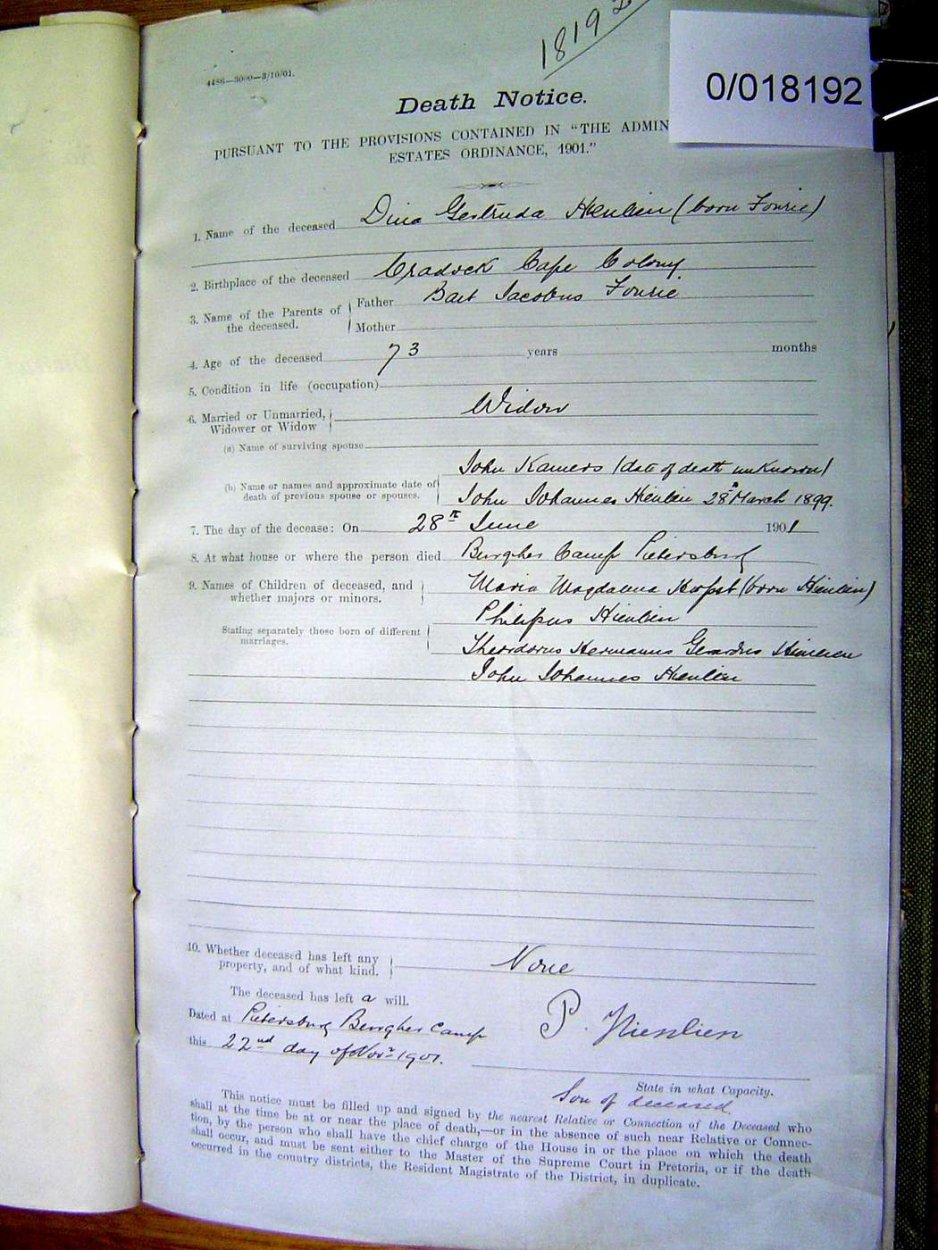 18192
0/018192
4486—3000—3/10/01.
Death Notice.
PURSUANT TO THE PROVISIONS CONTAINED IN "THE ADMIN
ESTATES ORDINANCE, 1901."
1. Name of the deceased Dina Gertruda Hienlien (born Fourie)
2. Birthplace of the deceased Cradock Cape Colony
3. Name of the Parents of the deceased. Father Bart Jacobus Fourie
Mother
4. Age of the deceased 73 years months
5. Condition in life (occupation)
6. Married or Unmarried, Widower or Widow Widow
(a) Name of surviving spouse
(b) Name or names and approximate date of death of previous spouse or spouses. John Kamers (date of death unknown)
John Johannes Hienlien 28th March 1899.
7. The day of the decease: On 28th June 1901
8. At what house or where the person died Burgher Camp Pietersburg
9. Names of Children of deceased, and whether majors or minors. Maria Magdalena (born Hienlien)
Philipus Hienlien
Stating separately those born of different marriages. Theodorus Hermanus Gerardus Hienlien
John Johannes Hienlien
10. Whether deceased has left any property, and of what kind. None
The deceased has left a will.
Dated at Pietersburg Burgher Camp
this 22nd day of Novr 1901.
P. Hienlien
State in what Capacity.
Son of deceased
This notice must be filled up and signed by the nearest Relative or Connection of the Deceased who
shall at the time be at or near the place of death,—or in the absence of such near Relative or Connec-
tion, by the person who shall have the chief charge of the House in or the place on which the death
shall occur, and must be sent either to the Master of the Supreme Court in Pretoria, or if the death
occurred in the country districts, the Resident Magistrate of the District, in duplicate.